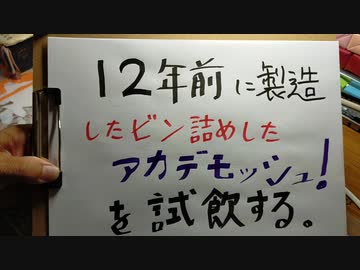 12年前に製造
したビン詰めした
アカデモッシュ!
を試飲する。